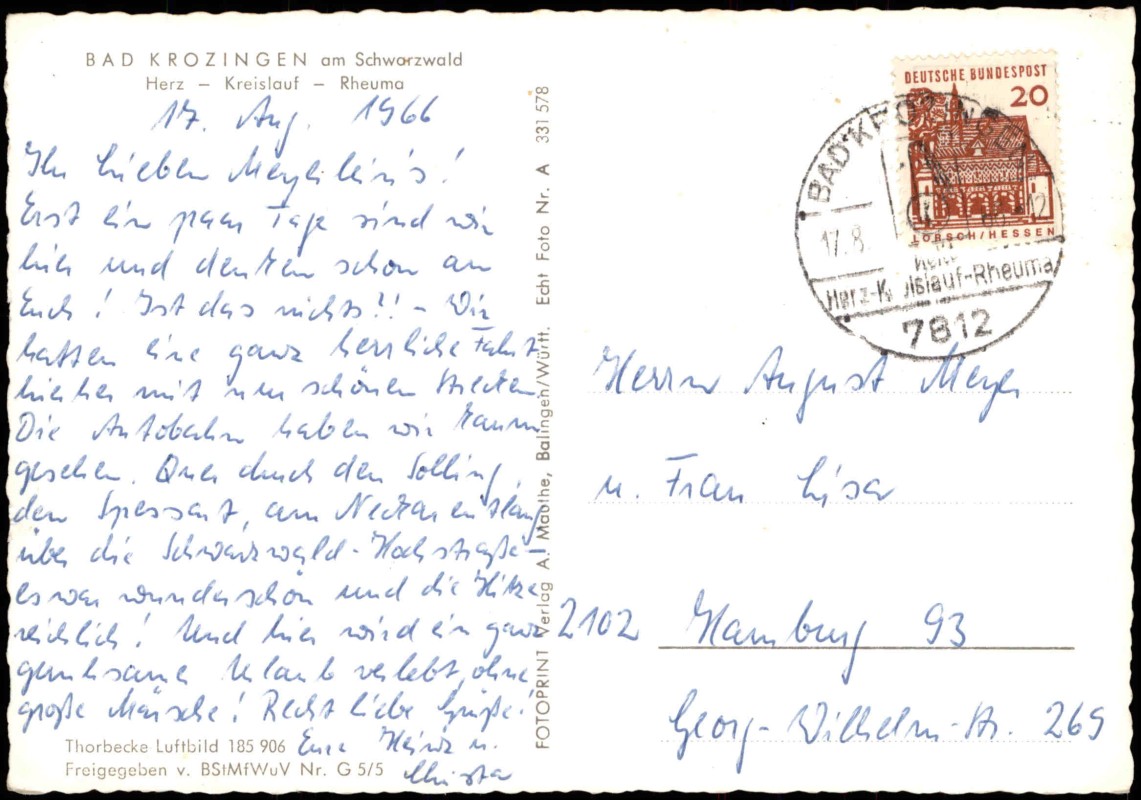 BAD KROZINGEN am Schwarzwald
Herz – Kreislauf – Rheuma
17. Aug. 1966
Ihr lieben Meyerlein's!
Erst ein paar Tage sind wir
hier und denken schon an
Euch! Ist das nichts?! – Wir
hatten eine ganz herrliche Fahrt
hierher mit nur schönen Strecken.
Die Autobahn haben wir kaum
gesehen. Quer durch den Solling,
den Spessart, am Neckar entlang
über die Schwarzwald-Hochstraße –
es war wunderschön und die Hitze
reichlich! Und hier wird ein ganz
geruhsamer Urlaub verlebt, ohne
große Märsche! Recht liebe Grüße!
Eure Heinz u.
Thorbecke Luftbild 185 906
Freigegeben v. BStMfWuV Nr. G 5/5
FOTOPRINT Verlag A. Mauthe, Balingen/Württ. Echt Foto Nr. A 331 578
DEUTSCHE BUNDESPOST
20
LORSCH/HESSEN
BAD KROZINGEN
17.8.
Herz-Kreislauf-Rheuma
7812
Herrn August Meyer
u. Frau Lisa
2102 Hamburg 93
Georg-Wilhelm-Str. 269